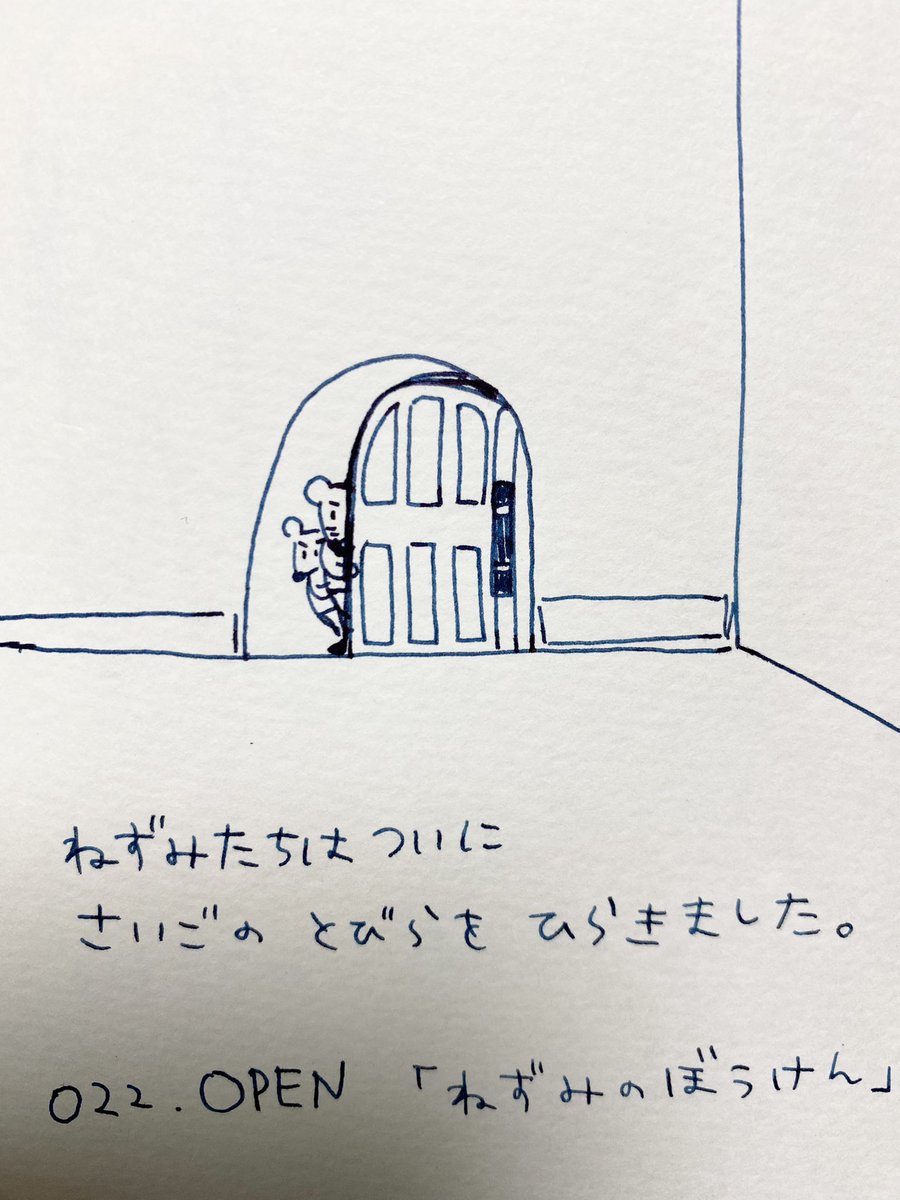 ねずみたちは ついに
さいごの とびらを ひらきました。
022. OPEN 「ねずみのぼうけん」